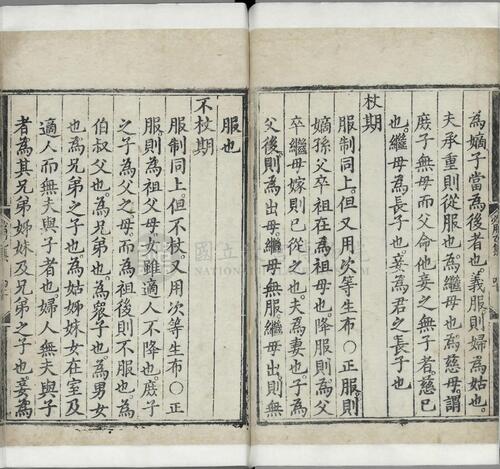 為嫡子當為後者也。義服則婦為姑也。
夫承重則從服也。為繼母也為慈母。謂
庶子無母而父命他妾之無子者慈已
也。繼母為長子也。妾為君之長子也
杖期
服制同上。但又用次等生布○正服。則
嫡孫父卒祖在為祖母也。降服則為父
卒繼母嫁則已從之也。夫為妻也。子為
父後。則為出母。繼母無服。繼母出則無
服也
不杖期
服制同上但不杖。又用次等生布○正
服。則為祖父母女雖適人不降也。庶子
之子為父之母。而為祖後則不服也。為
伯叔父也。為兄弟也。為衆子也。為男女
也。為兄弟之子也。為姑姊妹女在室及
適人而無夫與子者也。婦人無夫與子
者為其兄弟姊妹及兄弟之子也。妾為